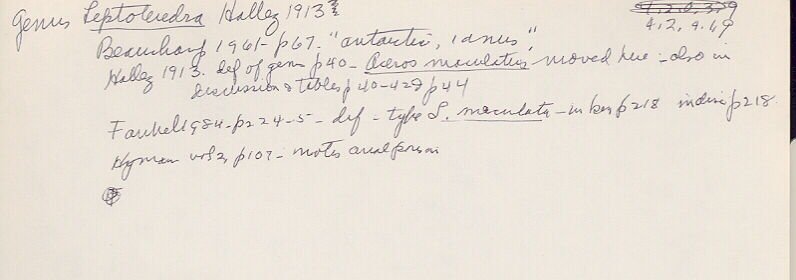 Genus Leptoteredra Hallez 1913
4, 2, 9. 69
Beauchamp 1961 - p67. "antarctic, 1 anus",
Hallez 1913. def of genus p40 - Aceros maculatus moved here - also in
discussion & tables p40-42 & p44
Faubel 1984 - p224-5 - def - type L. maculata - in key p218 index p218.
Hyman vol 2, p107 - notes anal pore